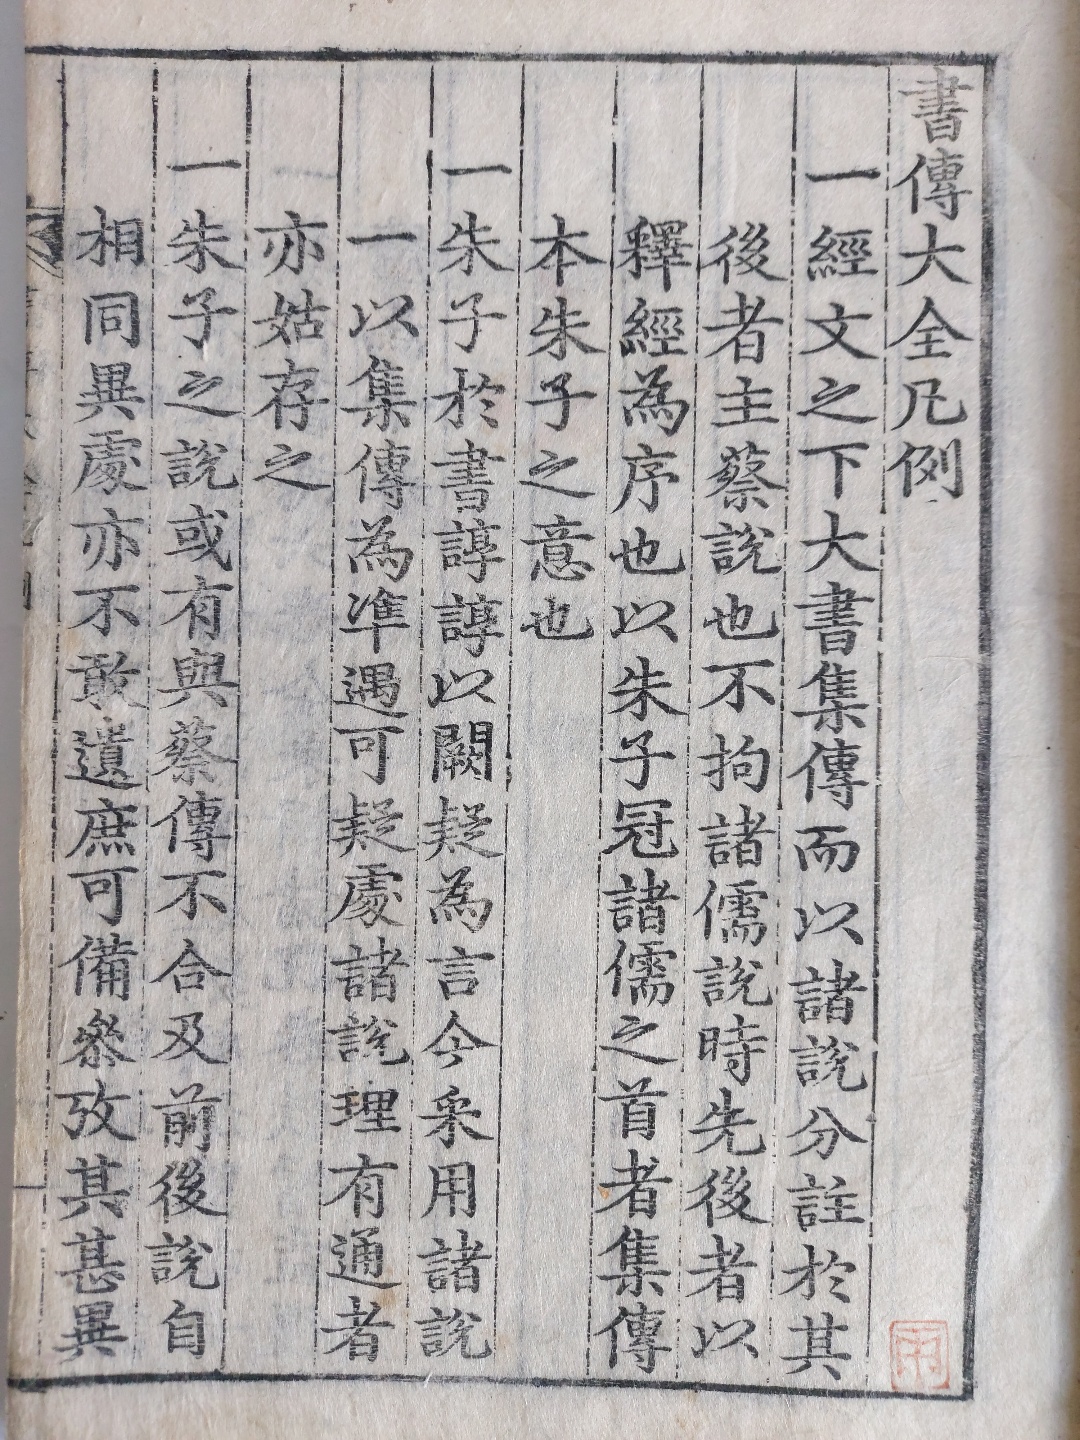 書傳大全凡例
一經文之下大書集傳而以諸說分註於其
後者主蔡說也不拘諸儒說時先後者以
釋經為序也以朱子冠諸儒之首者集傳
本朱子之意也
一朱子於書諄諄以闕疑為言今采用諸說
一以集傳為準遇可疑處諸說理有通者
亦姑存之
一朱子之說或有與蔡傳不合及前後說自
相同異處亦不敢遺庶可備叅攷其甚異